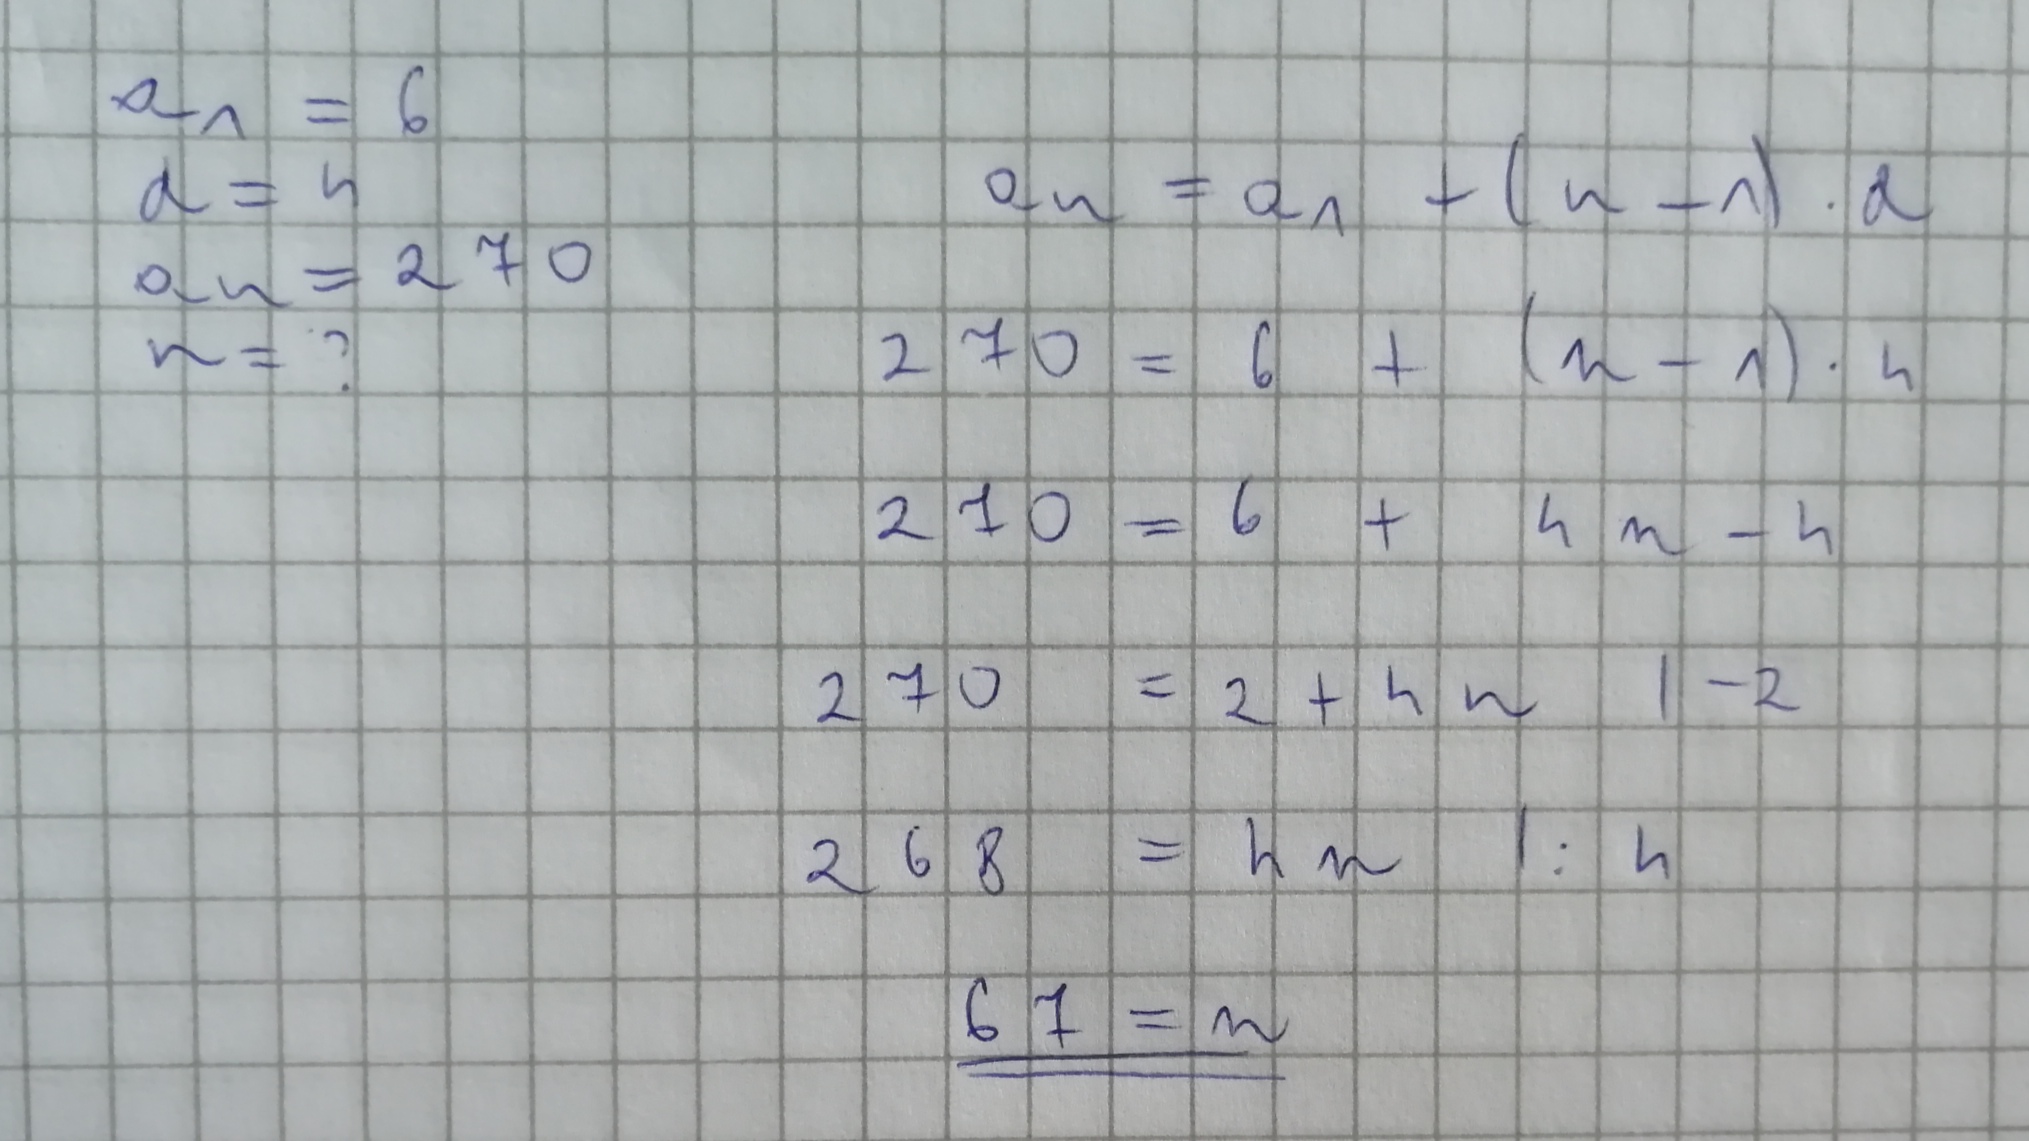 a₁ = 6
d = 4
aₙ = 270
n = ?
aₙ = a₁ + (n - 1) · d
270 = 6 + (n - 1) · 4
270 = 6 + 4n - 4
270 = 2 + 4n | -2
268 = 4n | : 4
67 = n